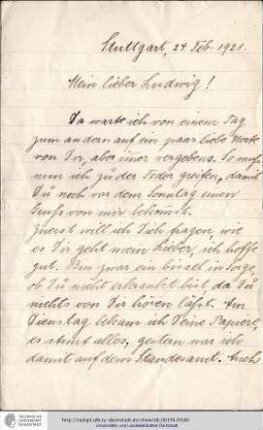 Stuttgart, 24 Feb. 1921.
Mein lieber Ludwig!
Da warte ich von einem Tag
zum andern auf ein paar liebe Worte
von Dir, aber imer vergebens. So muß
nun ich zu der Feder greifen, damit
Du noch vor dem Sonntag einen
Gruß von mir bekomst.
Zuerst will ich Dich fragen, wie
es Dir geht mein Lieber, ich hoffe
gut. Bin zwar ein bissel in Sorge,
ob Du nicht erkrankt bist, da Du
nichts von Dir hören läßt. Am
Dienstag bekam ich Deine Papiere,
es stimt alles, gestern war ich
damit auf dem Standesamt. Auch
TECHNISCHE
UNIVERSITÄT
DARMSTADT
Universitäts- und Landesbibliothek Darmstadt